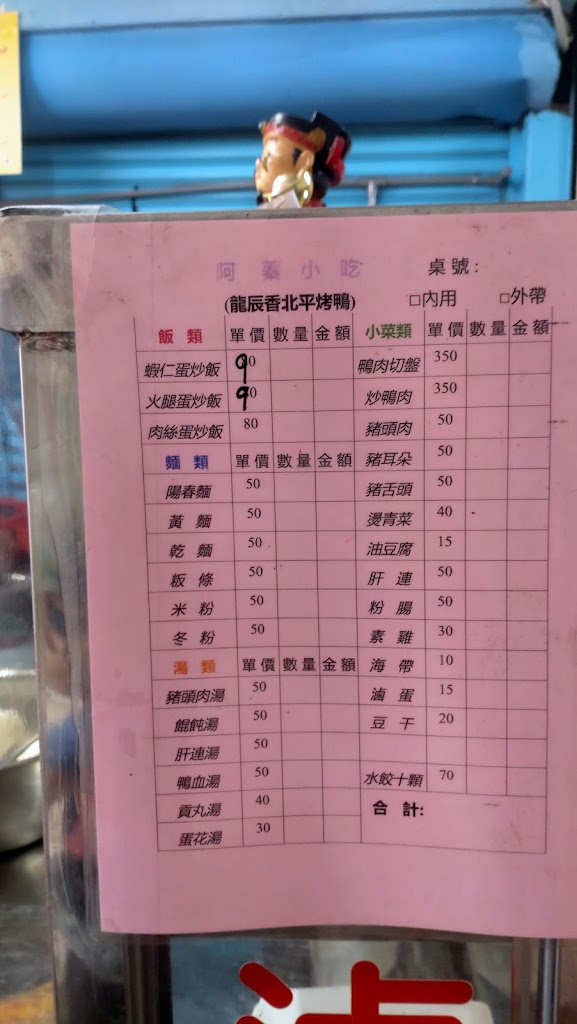 阿蓁小吃 桌號:
(龍辰香北平烤鴨) □內用 □外帶
飯類 單價 數量 金額 小菜類 單價 數量 金額
蝦仁蛋炒飯 90 鴨肉切盤 350
火腿蛋炒飯 90 炒鴨肉 350
肉絲蛋炒飯 80 豬頭肉 50
麵類 單價 數量 金額 豬耳朵 50
陽春麵 50 豬舌頭 50
黃麵 50 燙青菜 40
乾麵 50 油豆腐 15
粄條 50 肝連 50
米粉 50 粉腸 50
冬粉 50 素雞 30
湯類 單價 數量 金額 海帶 10
豬頭肉湯 50 滷蛋 15
餛飩湯 50 豆干 20
肝連湯 50
鴨血湯 50 水餃十顆 70
貢丸湯 40 合計:
蛋花湯 30